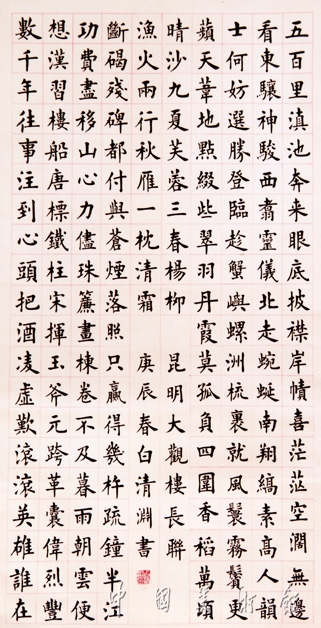 五百里滇池奔来眼底披襟岸幘喜茫茫空闊無邊
看東驤神駿西翥靈儀北走蜿蜒南翔縞素高人韻
士何妨選勝登臨趁蟹嶼螺洲梳裹就風鬟霧鬢更
蘋天葦地點綴些翠羽丹霞莫孤負四圍香稻萬頃
晴沙九夏芙蓉三春楊柳 昆明大觀樓長聯
數千年往事注到心頭把酒凌虛歎滾滾英雄誰在
想漢習樓船唐標鐵柱宋揮玉斧元跨革囊偉烈豐
功費盡移山心力儘珠簾畫棟卷不及暮雨朝雲便
斷碣殘碑都付與蒼煙落照只贏得幾杵疏鐘半江
漁火兩行秋雁一枕清霜 庚辰春白清淵書
中國美術館